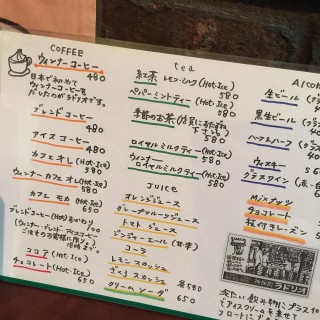 COFFEE
ウィンナーコーヒー
480
日本で初めて
ウィンナーコーヒーを
だしたのがラドリオです。
ブレンドコーヒー
480
アイスコーヒー
480
カフェオレ (Hot・Ice)
580
ウィンナーカフェオレ (Hot・Ice)
650
カフェモカ (Hot・Ice)
650
ブレンドコーヒー (Hot) おかわり
ココア (Hot・Ice)
650
チョコレート (Hot・Ice)
650
tea
紅茶 レモン・ミルク (Hot・Ice)
580
ペパーミントティー (Hot・Ice)
580
季節のお茶
580
ロイヤルミルクティー (Hot・Ice)
580
ウィンナー
ロイヤルミルクティー (Hot・Ice)
650
Juice
オレンジジュース
グレープフルーツジュース
トマトジュース
ジンジャーエール (甘・辛)
コーラ
レモンスカッシュ
各580
クリームソーダ
650
生ビール
黒生ビール
ハーフ&ハーフ
ウィスキー
グラスワイン
Mixナッツ
チョコレート
枝付きレーズン
ラドリオ
冷たい飲み物にプラス
でアイスクリームを乗せて
フロートに